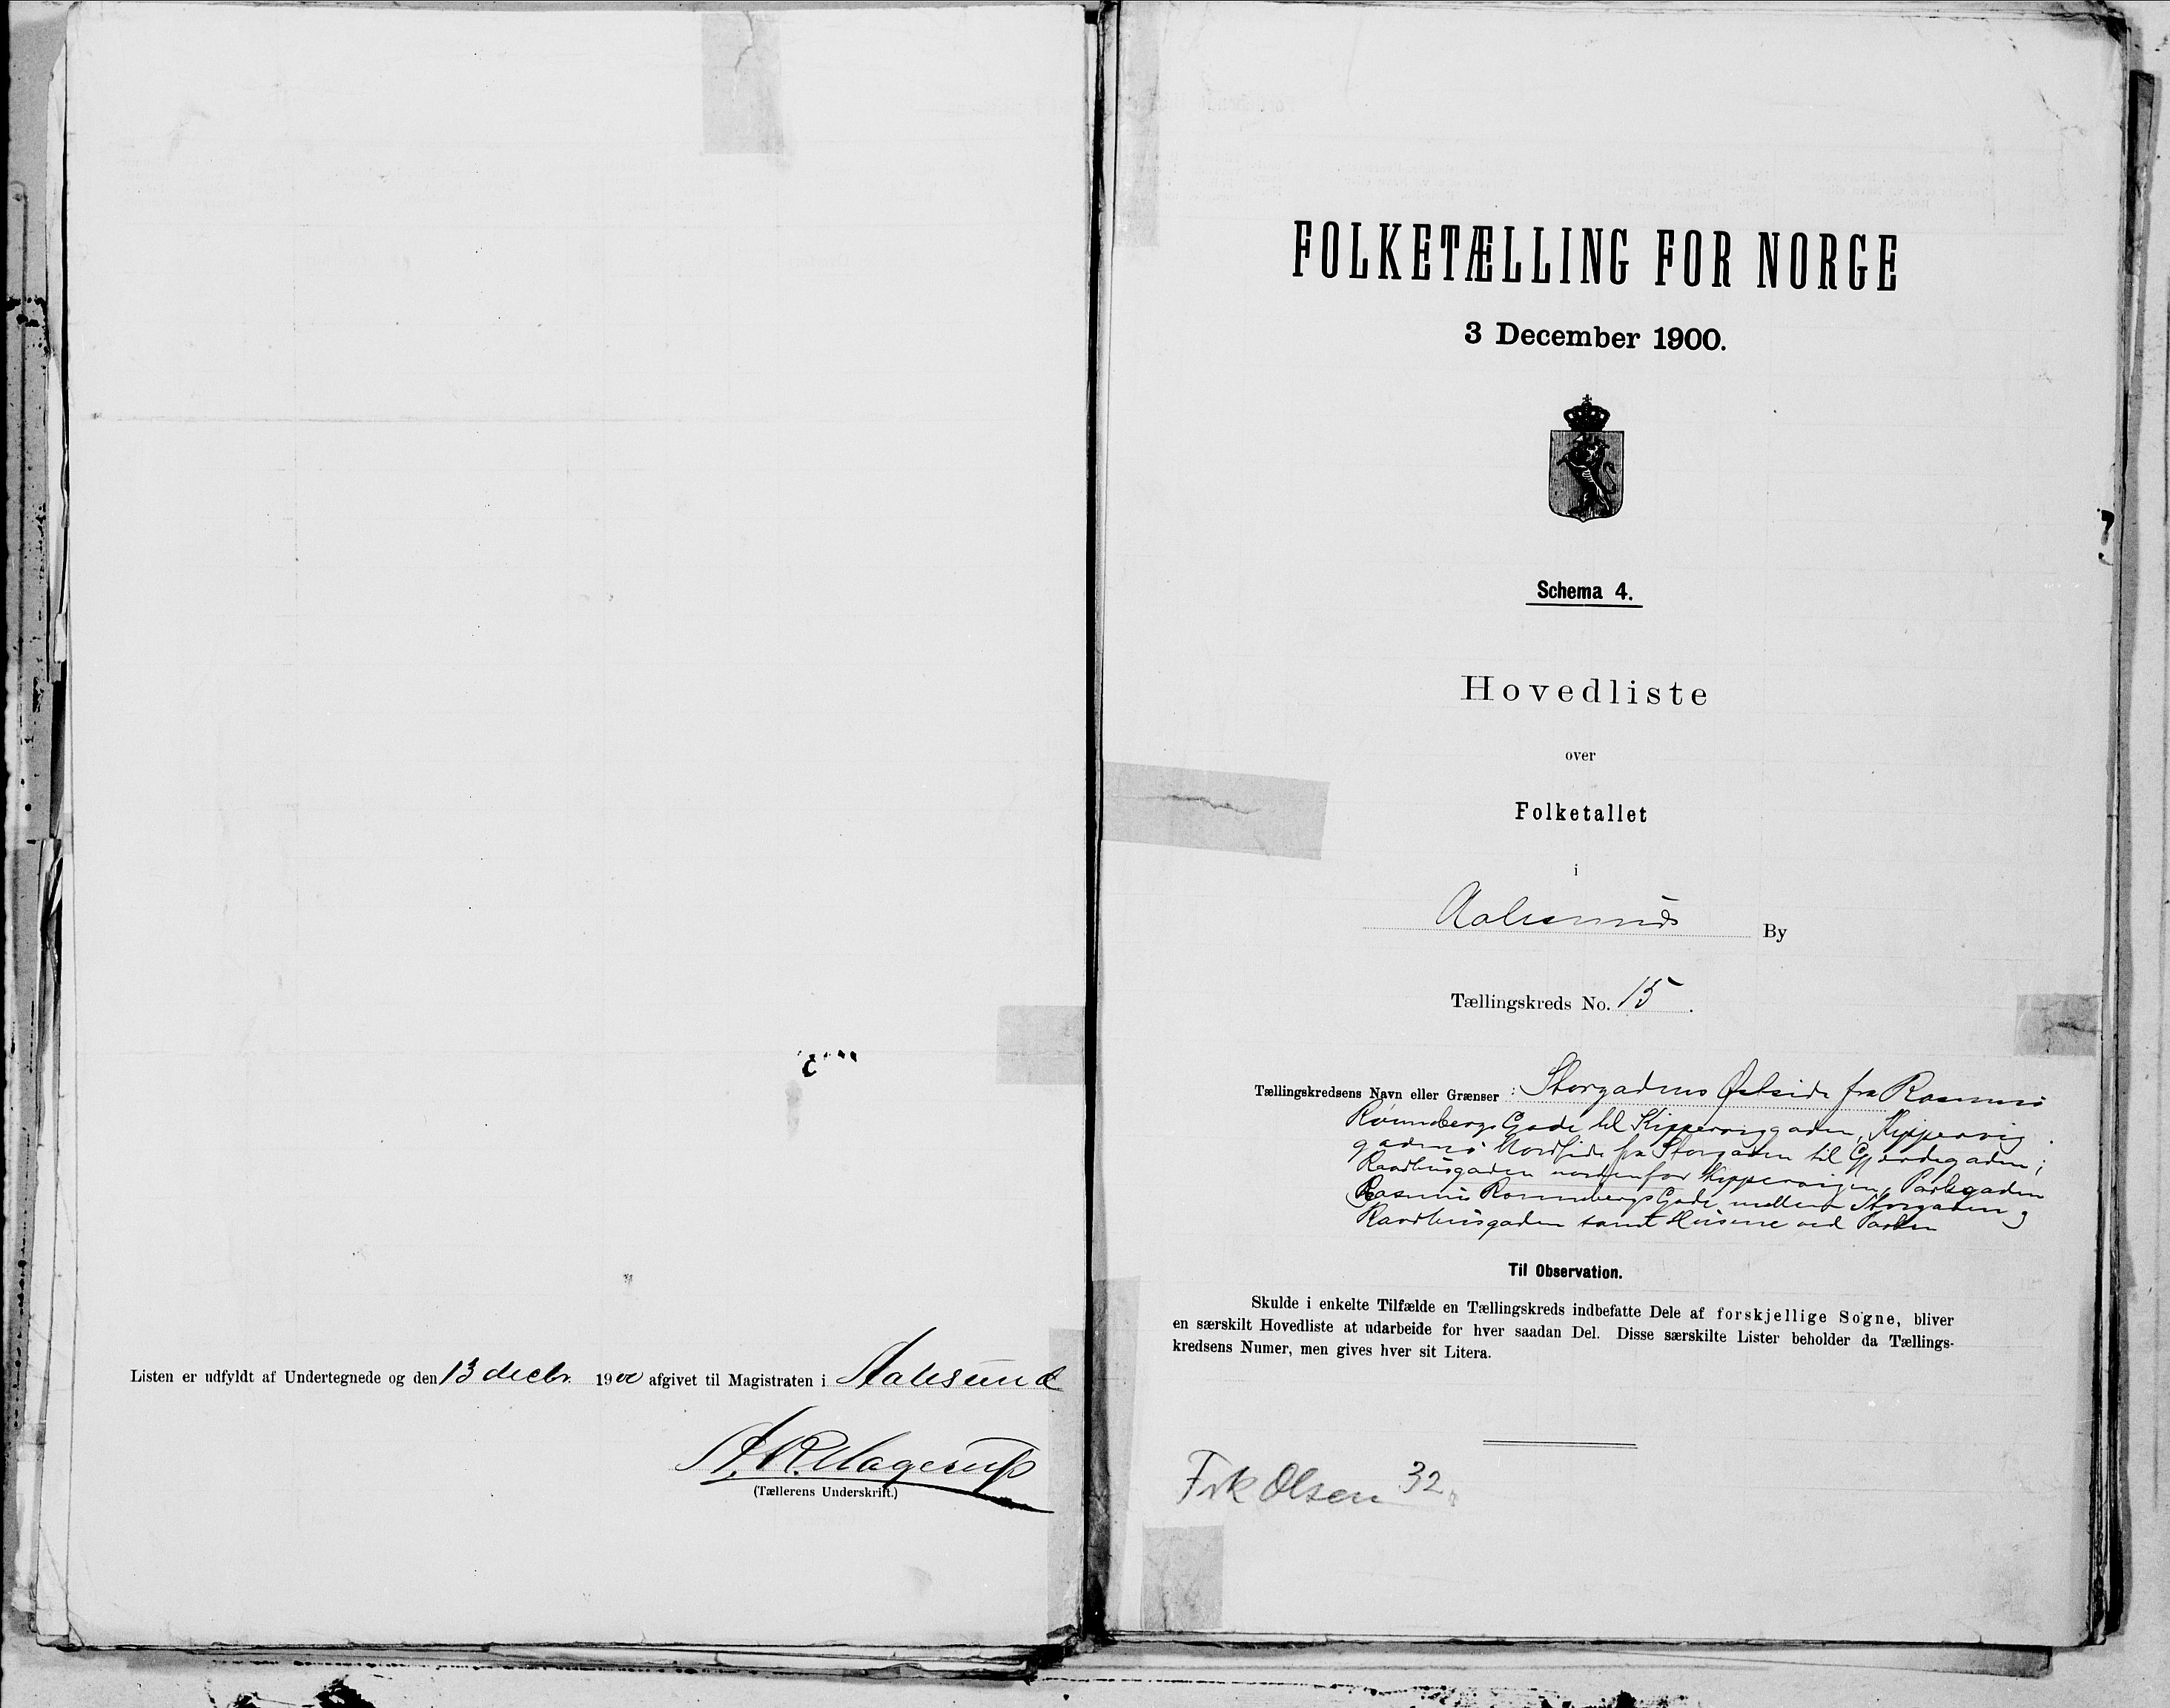 Listen er udfyldt af Undertegnede og den 13 decbr. 1900 afgivet til Magistraten i Aalesund
A. R. Hagerup
(Tællerens Underskrift.)
FOLKETÆLLING FOR NORGE
3 December 1900.
Schema 4.
Hovedliste
over
Folketallet
i
Aalesunds By
Tællingskreds No. 15.
Tællingskredsens Navn eller Grænser: Storgadens Østside fra Rasmus
Rønnebergs Gade til Kipperviggaden, Kippervig
gadens Nordside fra Storgaden til Gjerdegaden;
Raadhusgaden nordenfor Kippervigen, Parkgaden
Rasmus Rønnebergs Gade mellem Storgaden og
Raadhusgaden samt Husene ved Parken
Til Observation.
Skulde i enkelte Tilfælde en Tællingskreds indbefatte Dele af forskjellige Sogne, bliver
en særskilt Hovedliste at udarbeide for hver saadan Del. Disse særskilte Lister beholder da Tællings-
kredsens Numer, men gives hver sit Litera.
Frk Olsen 32